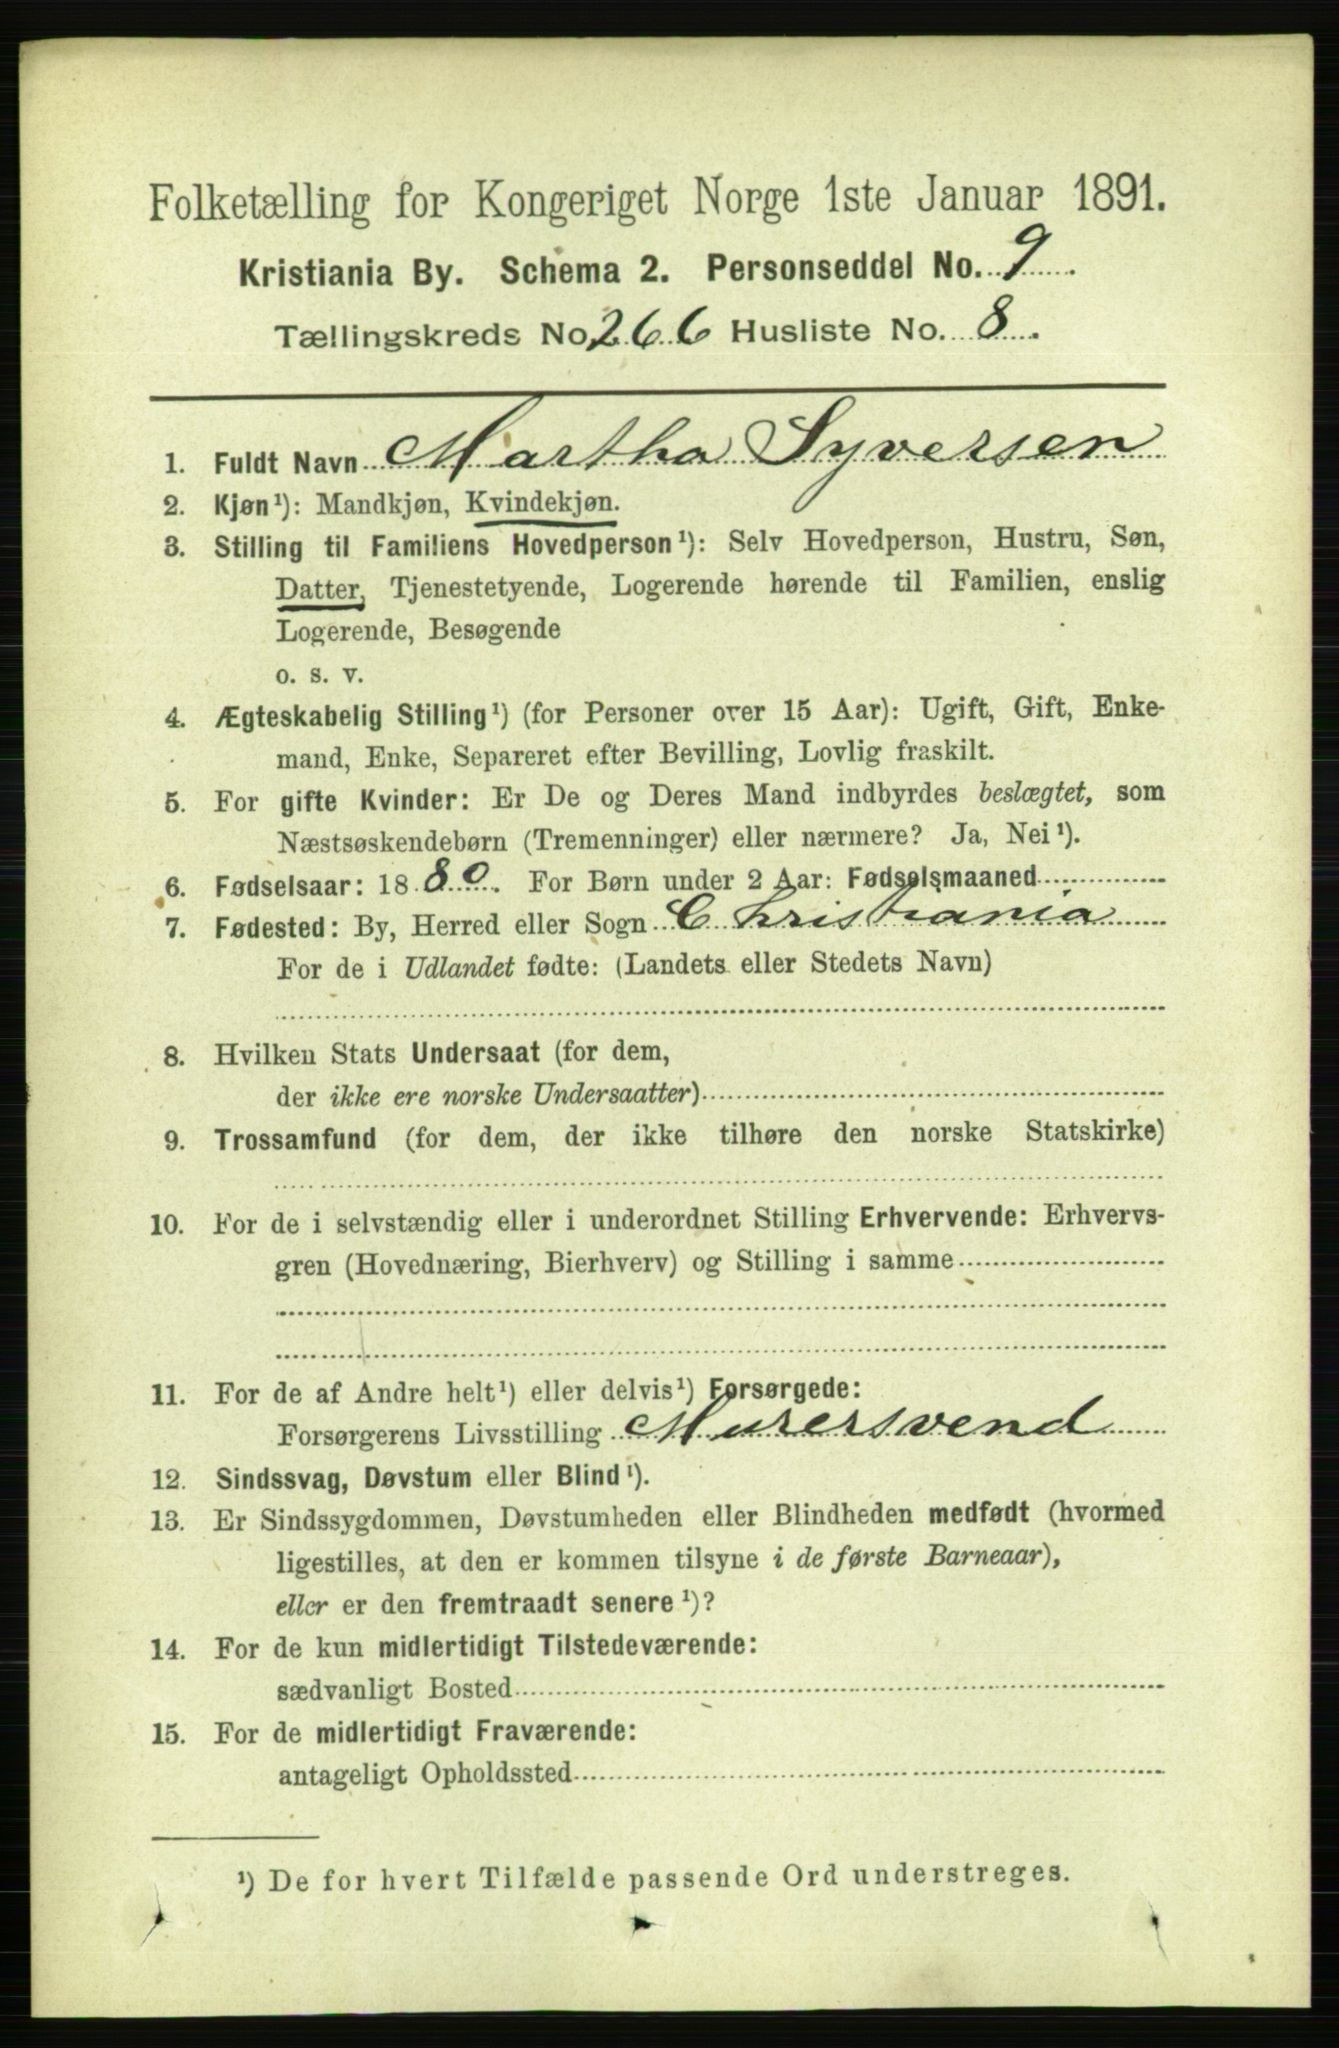 Folketælling for Kongeriget Norge 1ste Januar 1891.
Kristiania By. Schema 2. Personseddel No. 9.
Tællingskreds No 266 Husliste No. 8.
1. Fuldt Navn Martha Syversen
2. Kjøn¹): Mandkjøn, Kvindekjøn.
3. Stilling til Familiens Hovedperson¹): Selv Hovedperson, Hustru, Søn,
Datter, Tjenestetyende, Logerende hørende til Familien, enslig
Logerende, Besøgende
o. s. v.
4. Ægteskabelig Stilling¹) (for Personer over 15 Aar): Ugift, Gift, Enke-
mand, Enke, Separeret efter Bevilling, Lovlig fraskilt.
5. For gifte Kvinder: Er De og Deres Mand indbyrdes beslægtet, som
Næstsøskendebørn (Tremenninger) eller nærmere? Ja, Nei¹).
6. Fødselsaar: 1880. For Børn under 2 Aar: Fødselsmaaned
7. Fødested: By, Herred eller Sogn Christiania
For de i Udlandet fødte: (Landets eller Stedets Navn)
8. Hvilken Stats Undersaat (for dem,
der ikke ere norske Undersaatter)
9. Trossamfund (for dem, der ikke tilhøre den norske Statskirke)
10. For de i selvstændig eller i underordnet Stilling Erhvervende: Erhvervs-
gren (Hovednæring, Bierhverv) og Stilling i samme
11. For de af Andre helt¹) eller delvis¹) Forsørgede:
Forsørgerens Livsstilling Murersvend
12. Sindssvag, Døvstum eller Blind¹).
13. Er Sindssygdommen, Døvstumheden eller Blindheden medfødt (hvormed
ligestilles, at den er kommen tilsyne i de første Barneaar),
eller er den fremtraadt senere¹)?
14. For de kun midlertidigt Tilstedeværende:
sædvanligt Bosted
15. For de midlertidigt Fraværende:
antageligt Opholdssted
¹) De for hvert Tilfælde passende Ord understreges.